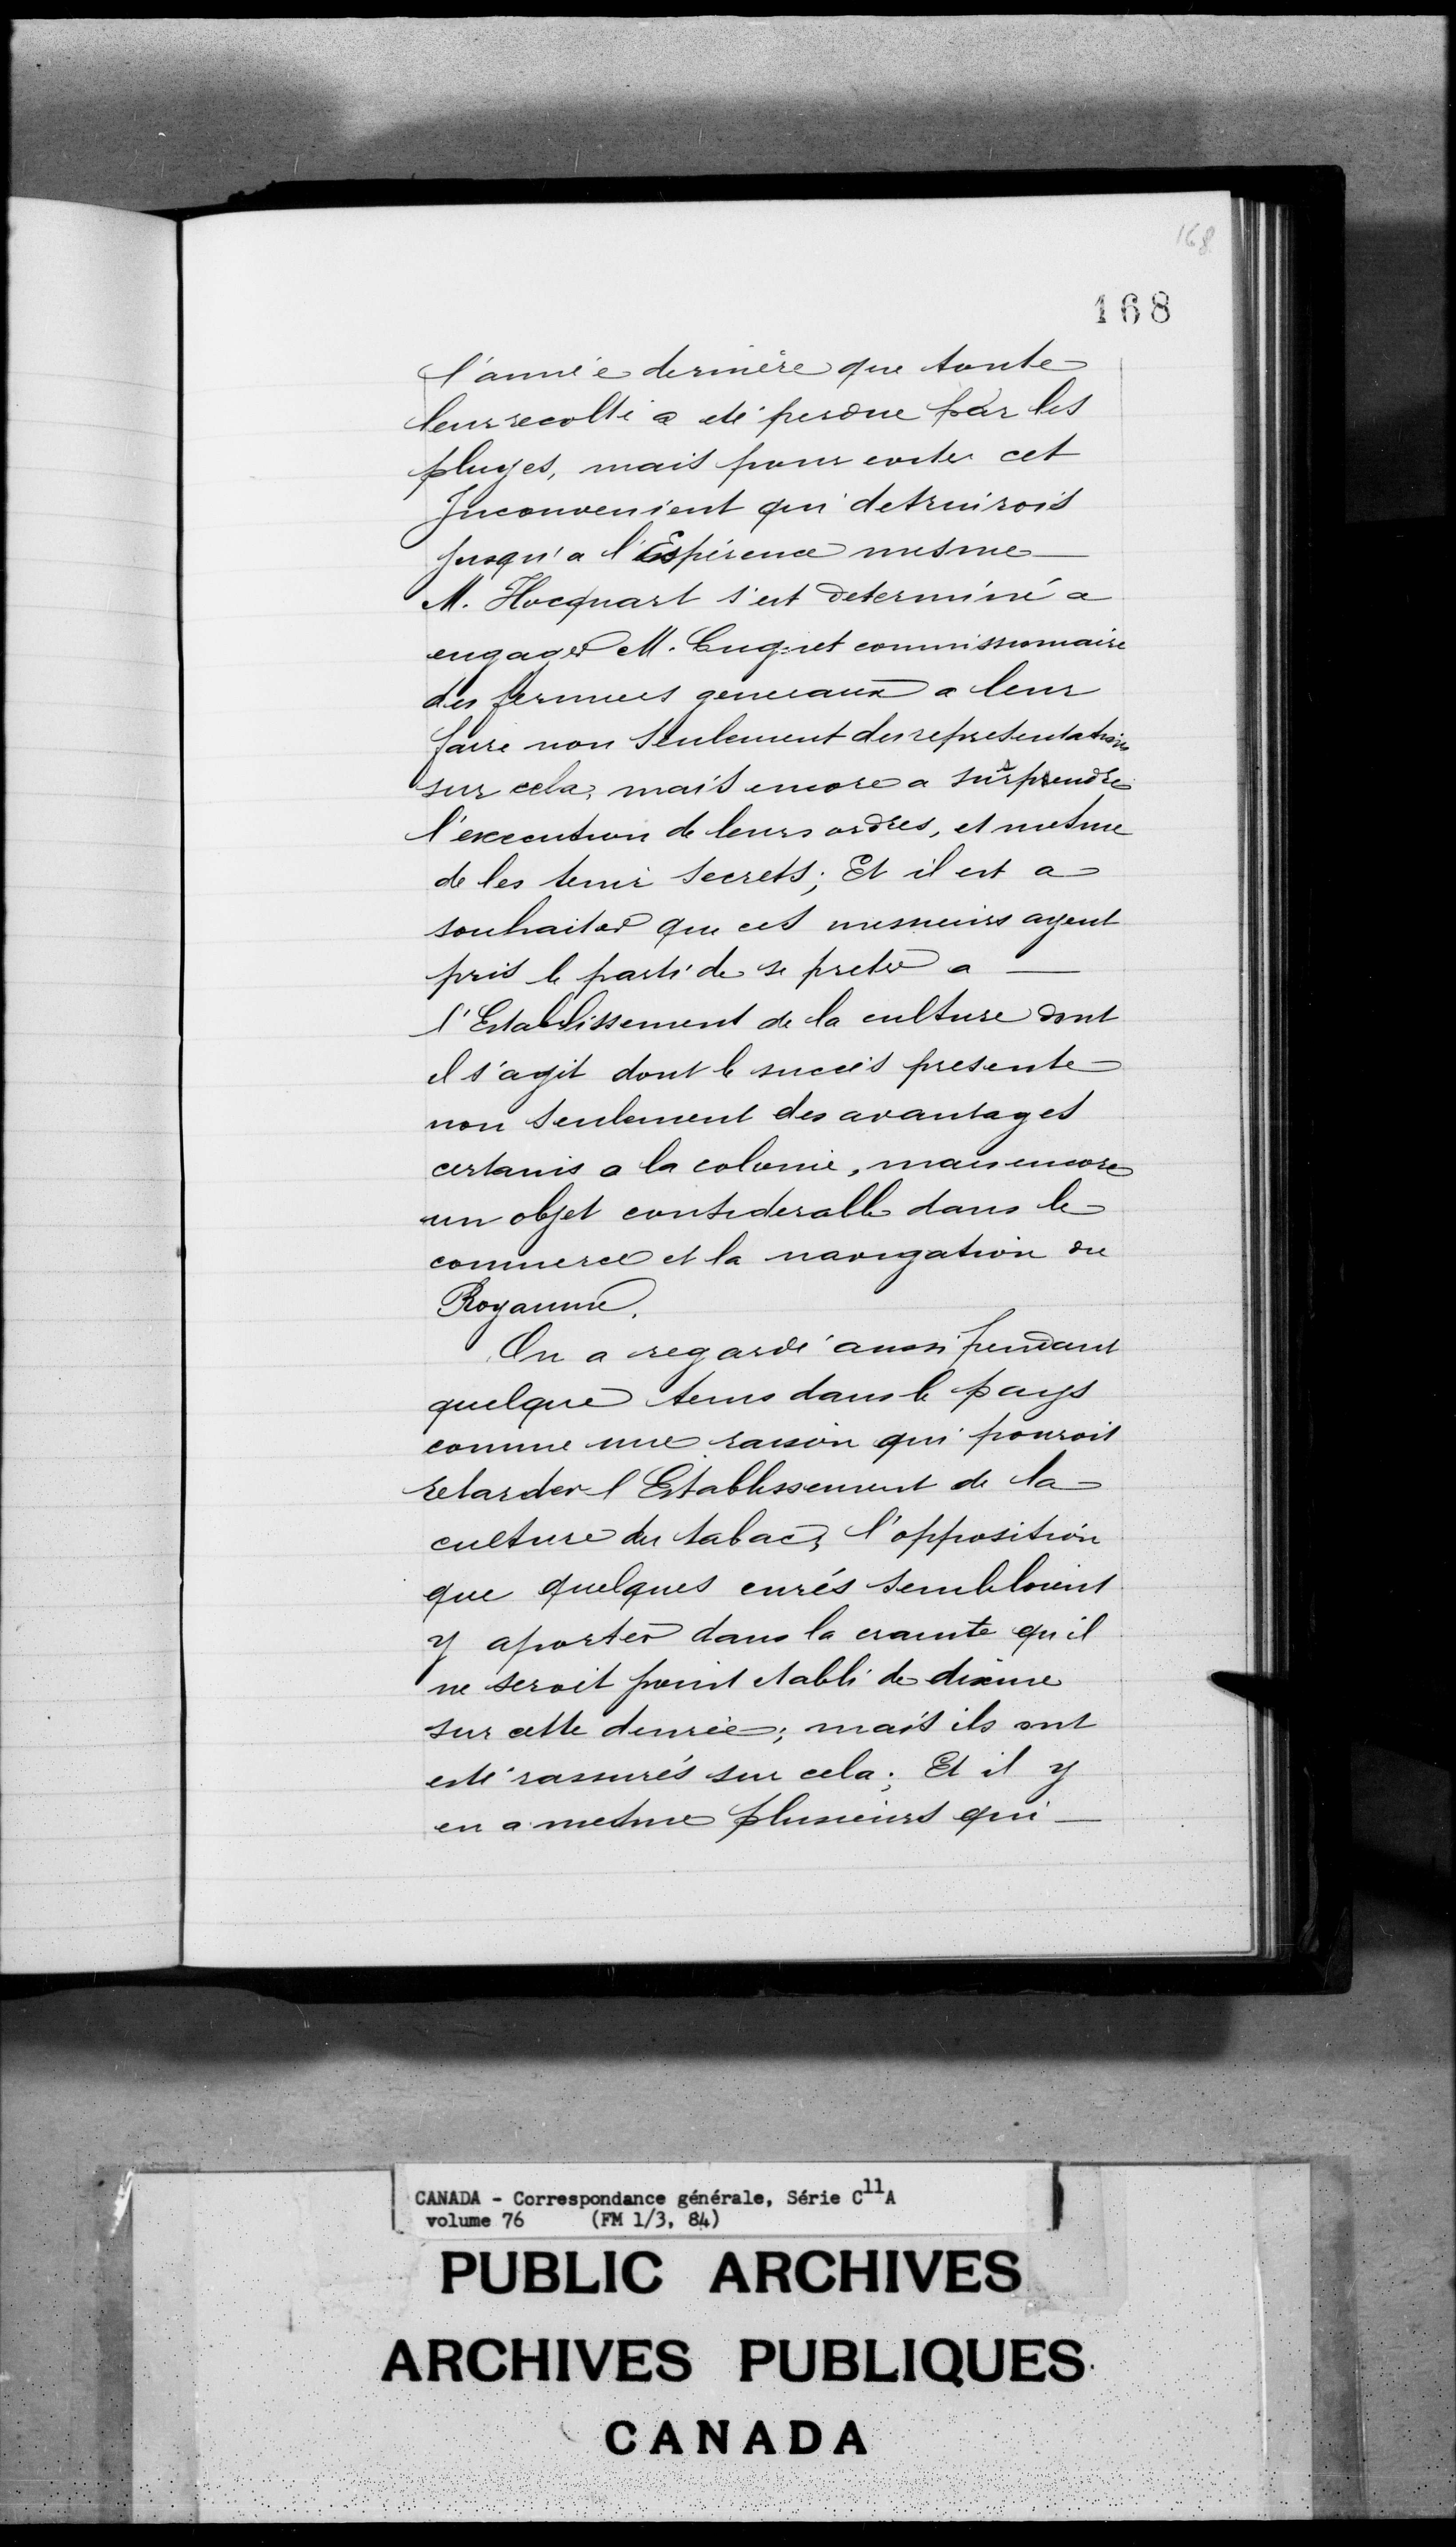 168
168
l'année derniere que toute
leur recolte a eté perdue par les
pluyes, mais pour eviter cet
Inconvenient qui detruirois
jusqu'a l'Espérence mesme
M. Hocquart s'est determiné a
engager M. Cugnet commissionnaire
des fermiers generaux a leur
faire non seulement des representations
sur cela, mais encore a surprendre
l'execution de leurs ordres, et mesme
de les tenir secrets; Et il est a
souhaiter que ces messieurs ayent
pris le parti de se preter a
l'Establissement de la culture dont
il s'agit dont le succés presente
non seulement des avantages
certains a la colonie, mais encore
un objet considerable dans le
commerce et la navigation du
Royaume.
On a regardé aussi pendant
quelque tems dans le pays
comme une raison qui pouroit
retarder l'Establissement de la
culture du tabac, l'opposition
que quelques curés sembloient
y aporter dans la crainte qu'il
ne seroit point etabli de dixme
sur cette denrée; mais ils ont
esté rassurés sur cela; Et il y
en a mesme plusieurs qui
CANADA - Correspondance générale, Série C11A
volume 76 (FM 1/3, 84)
PUBLIC ARCHIVES
ARCHIVES PUBLIQUES
CANADA